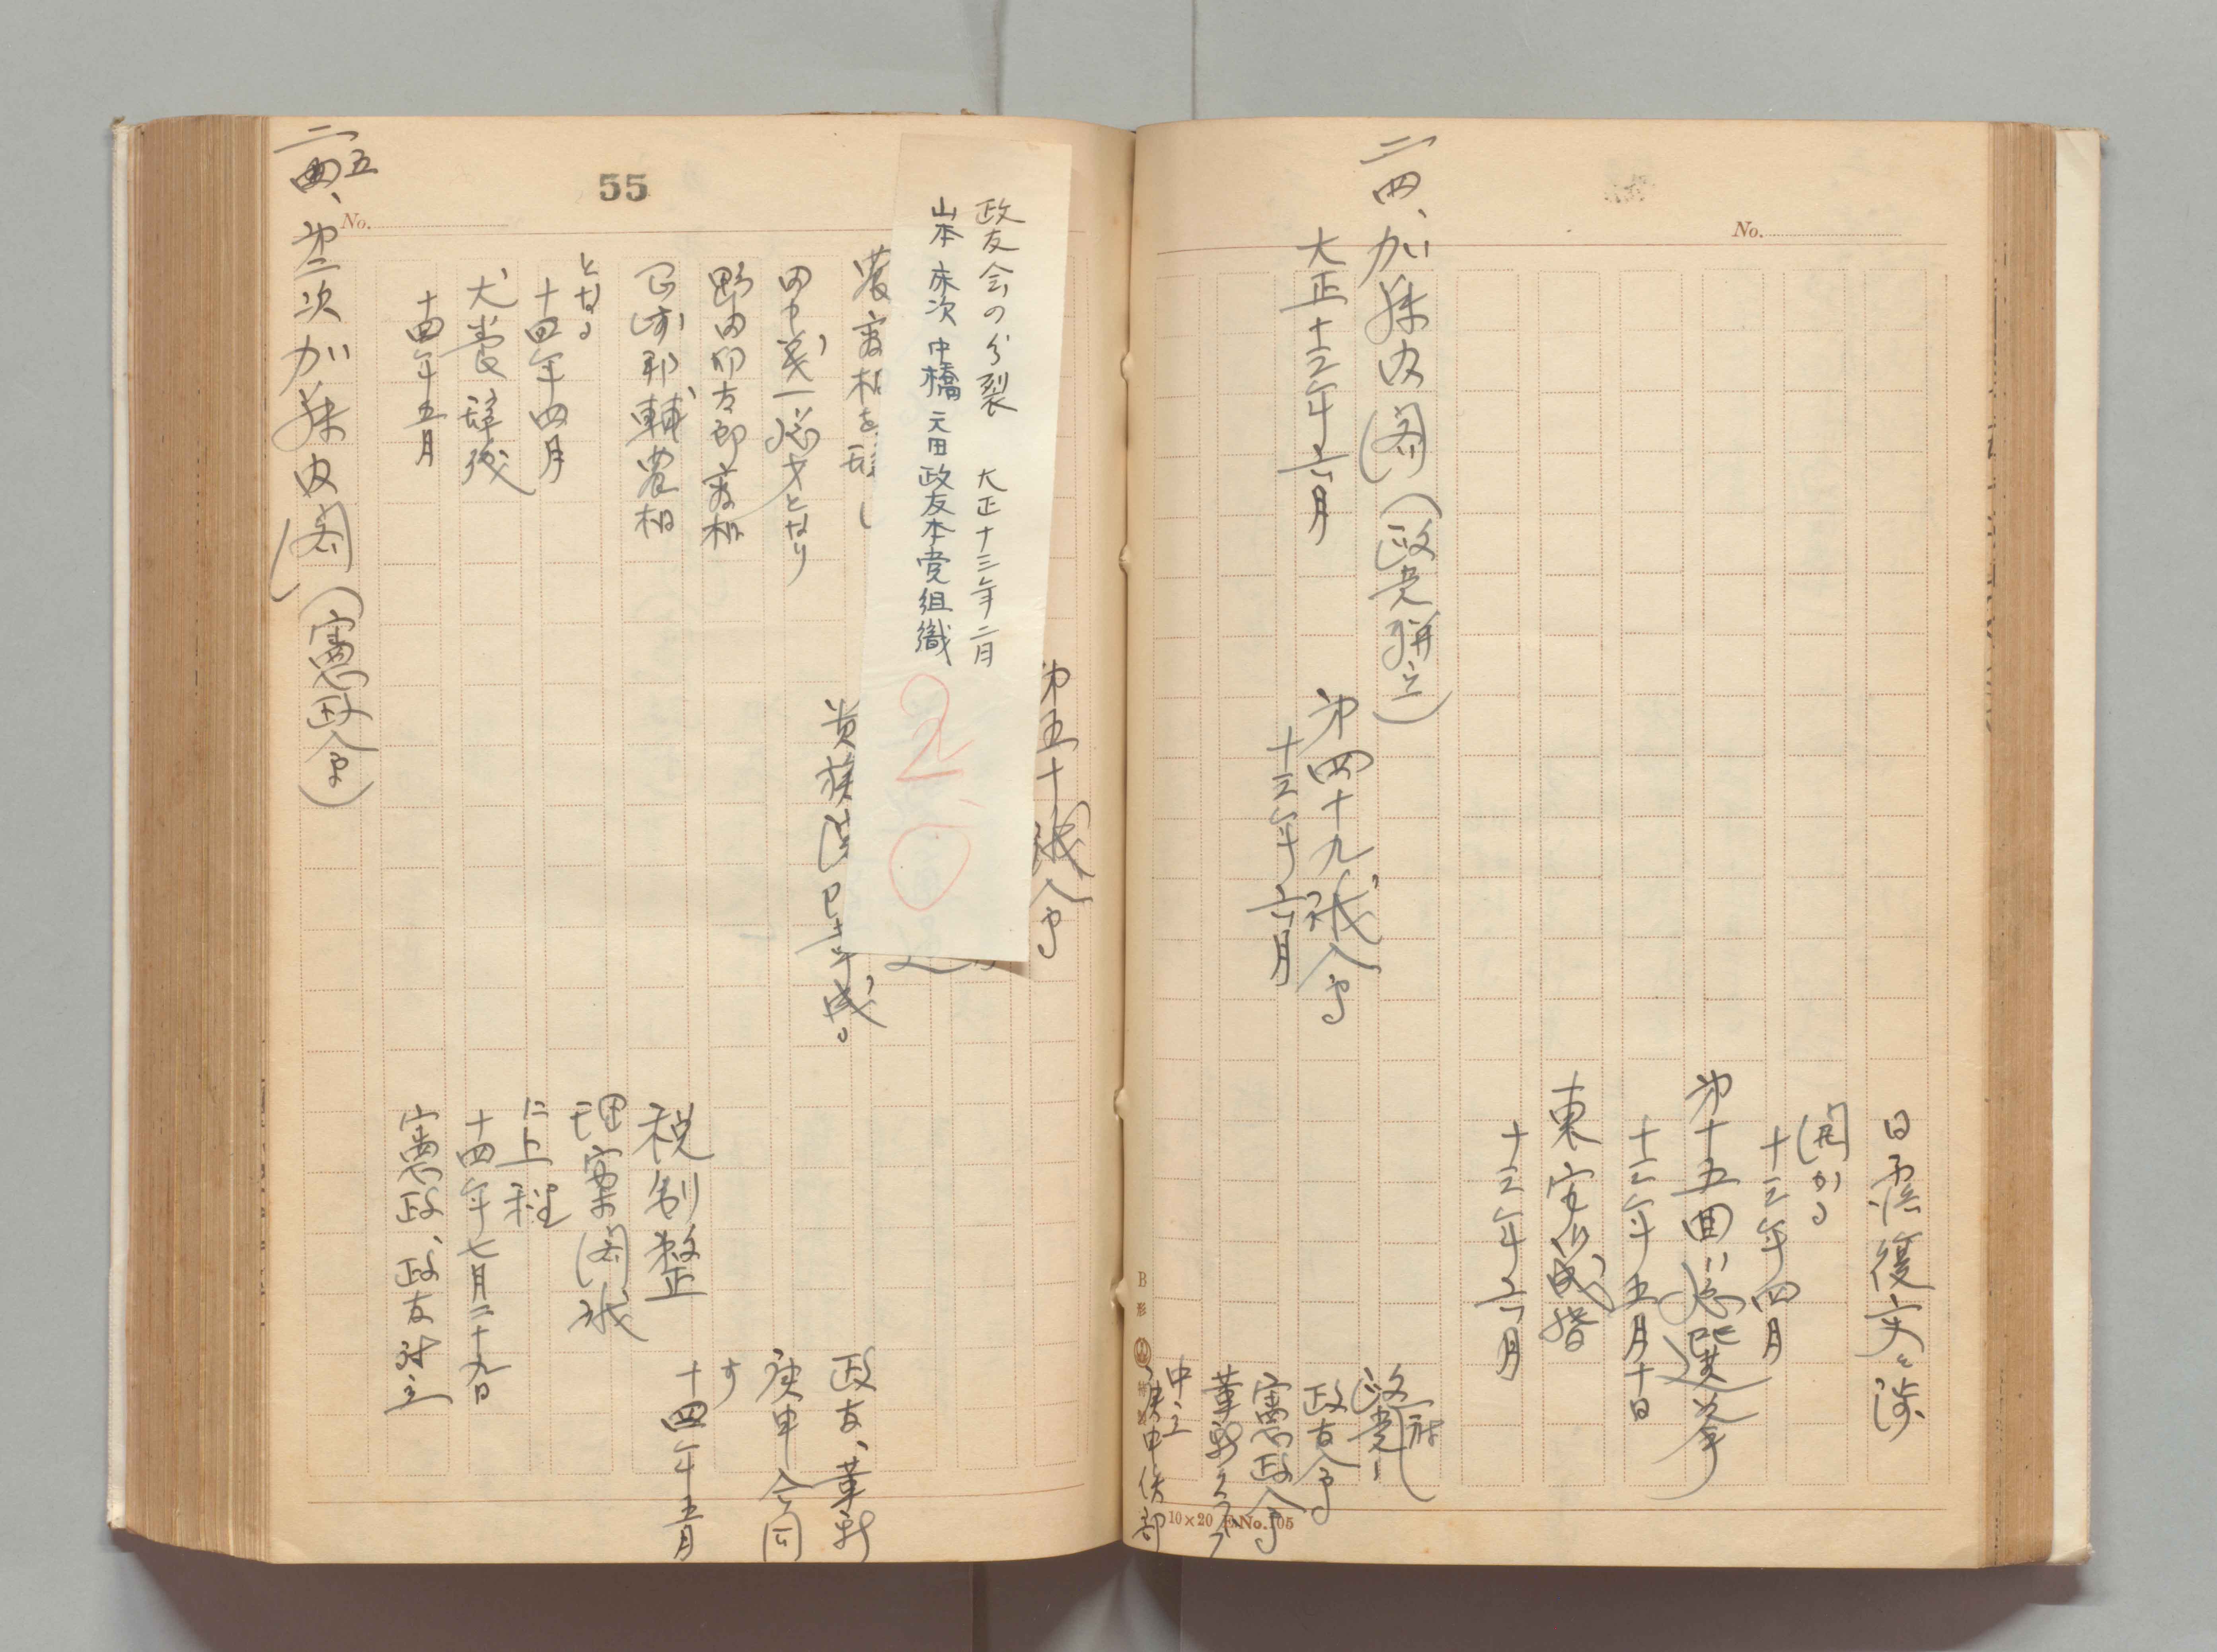 No.
日露復交々渉
開かる
十三年四月
第十五回総選挙
十三年五月十日
東宮御成婚
十三年六月
二四、加藤内閣（政党聯立）
大正十三年六月
第四十九議会
十三年六月
政党
政友会
憲政会
革新クラブ
中立
庚申倶楽部
B形
10×20 No.105
55
No.
第五十議会
政友会の分裂 大正十三年二月
山本 床次 中橋 元田 政友本党組織
20
農商相を辞し
貴族院改革成る
政友、革新
田中義一総才となり
庚申合同
す
野田卯太郎商相
十四年五月
岡崎邦輔農相
税制整
となる
理案閣議
十四年四月
に上程
犬養辞職
十四年七月二十九日
十四年五月
憲政、政友対立
二五、第二次加藤内閣（憲政会）